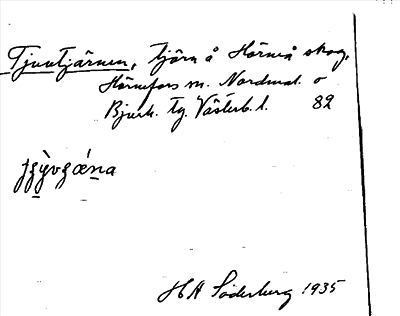 Tjuvtjärnen, tjärn å Hörneå skog,
Hörnefors m. Nordmal. o
Bjurh. tg. Västerb. l. 82
H A Söderberg 1935